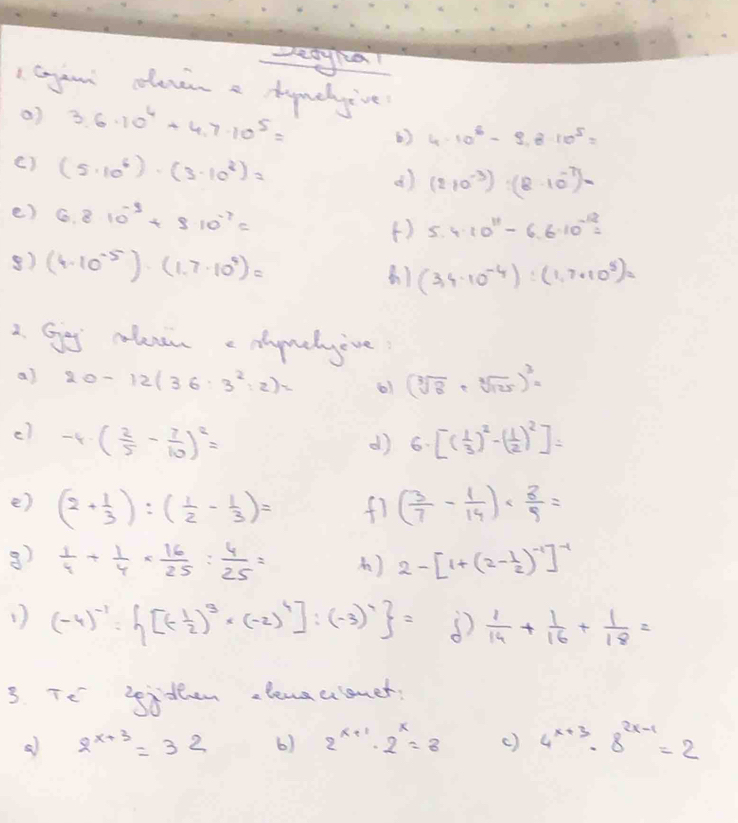 Detyra 1
1. Gjeni vlerën e shprehjeve:
a) 3,6·10⁴ + 4,7·10⁵ =
b) 4·10⁶ - 9,8·10⁵ =
c) (5·10⁶) · (3·10²) =
d) (2·10⁻³) : (8·10⁻⁷) =
e) 6,2·10⁻⁹ + 9·10⁻⁷ =
f) 5,4·10¹¹ - 6,6·10⁻¹² =
g) (4·10⁻⁵) · (1,7·10⁹) =
h) (3,4·10⁻⁴) : (1,7·10⁹) =
2. Gjej vlerën e shprehjeve:
a) 20 - 12(36 : 3² : 2) =
b) (³√8 + ³√125)³ =
c) -4·(2/5 - 7/10)² =
d) 6·[(1/3)² - (1/2)²] =
e) (2 + 1/3) : (1/2 - 1/3) =
f) (3/7 - 1/14) × 8/9 =
g) 1/4 + 1/4 × 16/25 : 4/25 =
h) 2 - [1 + (2 - 1/2)⁻¹]⁻¹
i) (-4)⁻¹ : {[(-1/2)³ × (-2)⁴] : (-3)²} =
j) 1/14 + 1/16 + 1/18 =
3. Të zgjidhen ekuacionet:
a) 2ˣ⁺³ = 32
b) 2ˣ⁺¹ · 2ˣ = 8
c) 4ˣ⁺³ · 8²ˣ⁻¹ = 2